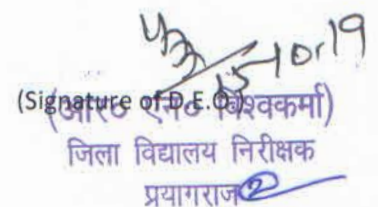 15-10-19
(Signature of D.E.O)
(आर० एन० विश्वकर्मा)
जिला विद्यालय निरीक्षक
प्रयागराज
2